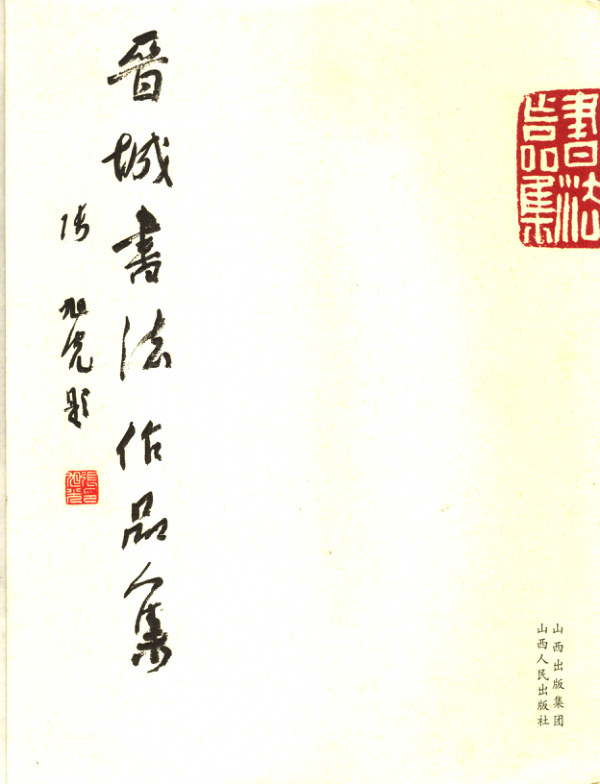 書法
作品集
晋城書法作品集
张旭光题
山西出版集团
山西人民出版社